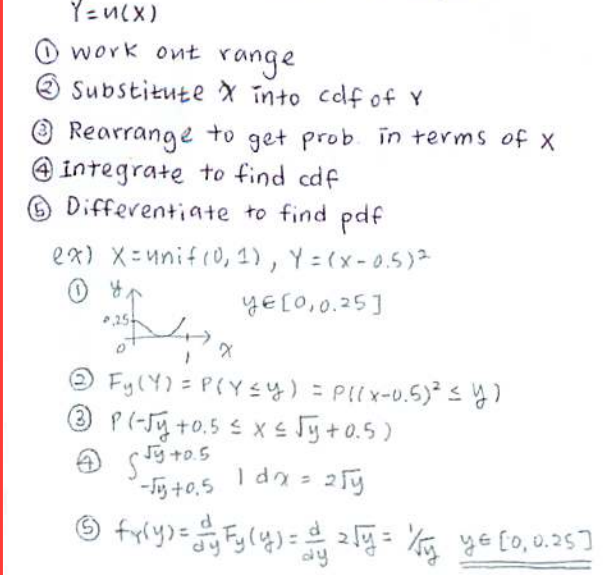 Y=u(X)
① work out range
② Substitute X into cdf of Y
③ Rearrange to get prob. in terms of X
④ Integrate to find cdf
⑤ Differentiate to find pdf
ex) X=unif(0,1), Y=(x-0.5)²
① y y∈[0,0.25]
0.25
0 1 x
② Fy(Y) = P(Y≤y) = P((x-0.5)² ≤ y)
③ P(-√y+0.5 ≤ x ≤ √y+0.5)
④ ∫_{-√y+0.5}^{√y+0.5} 1 dx = 2√y
⑤ fY(y) = d/dy Fy(y) = d/dy 2√y = 1/√y y∈[0,0.25]